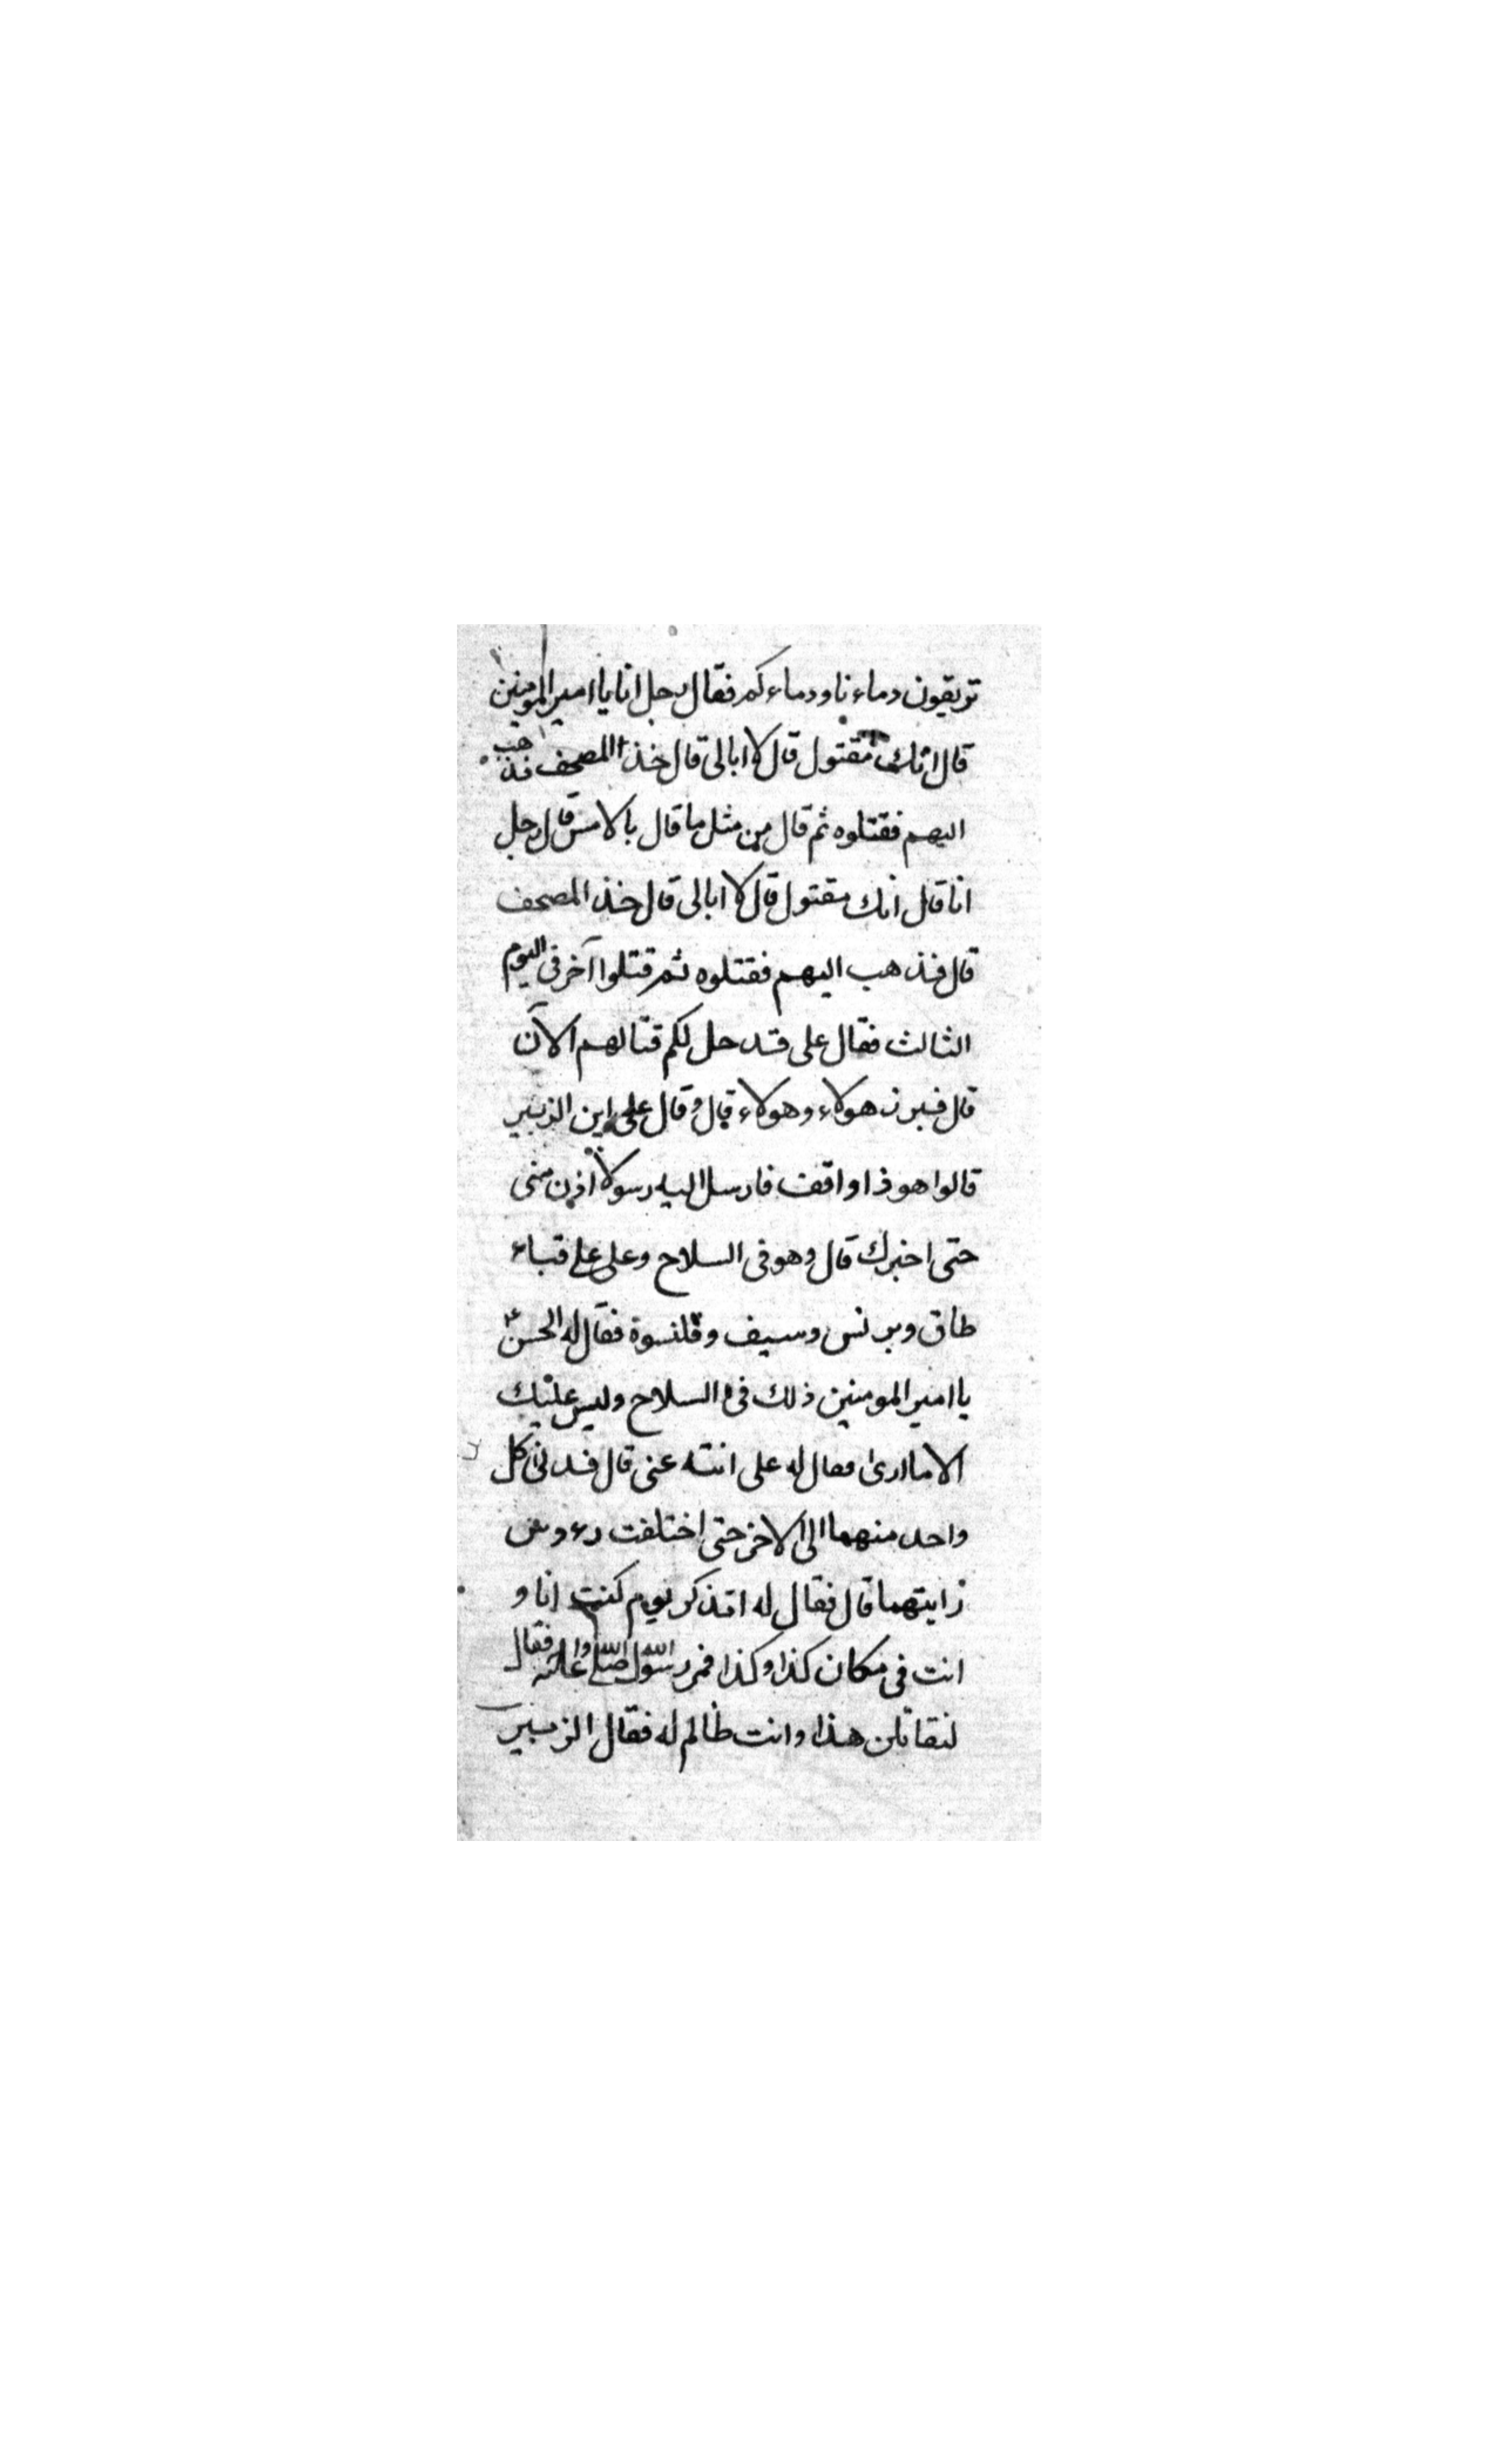 تريقون دماءنا ودماءكم فقال رجل انا يا امير المومنين
قال انك مقتول قال لا ابالى قال خذ المصحف فذهب
اليهم فقتلوه ثم قال من مثل ما قال بالامس قال رجل
انا قال انك مقتول قال لا ابالى قال خذ المصحف
قال فذهب اليهم فقتلوه ثم قتلوا آخر فى اليوم
الثالث فقال على قد حل لكم قتالهم الآن
قال فبرز هولاء وهولاء قال وقال على اين الزبير
قالوا هو ذا واقف فارسل اليه رسولا ادن منى
حتى اخبرك قال وهو فى السلاح وعلى على قباء
طاق وبرنس وسيف وقلنسوة فقال له الحسن
يا امير المومنين ذلك فى السلاح وليس عليك
الا ما ارى فقال له على انته عنى قال فدنى كل
واحد منهما الى الاخر حتى اختلفت رءوس
دابتهما قال فقال له اتذكر يوم كنت انا و
انت فى مكان كذا وكذا فمر رسول الله صلى الله عليه واله فقال
لتقاتلن هذا وانت ظالم له فقال الزبير